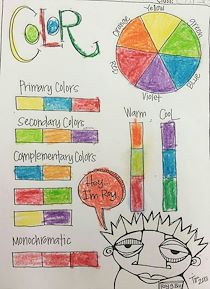 COLOR
Yellow
Orange
green
Red
Blue
Violet
Primary Colors
Warm
Cool
Secondary Colors
Complementary Colors
Hey
I'm Roy
Monochromatic